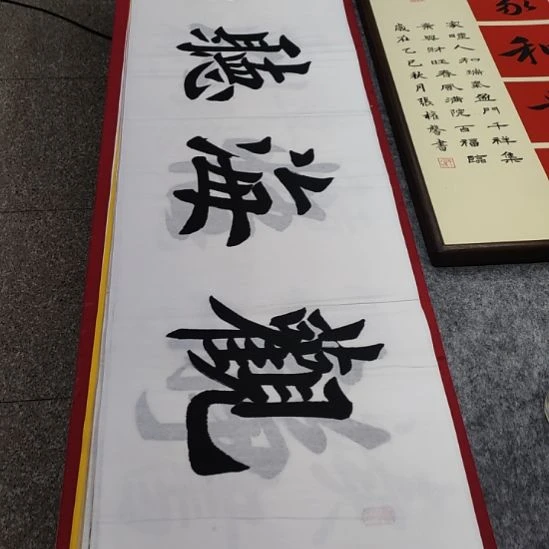 觀海聽
家睦人和瑞氣盈門千祥集
業興財旺春風滿院百福臨
歲在乙巳秋月張馨書
和